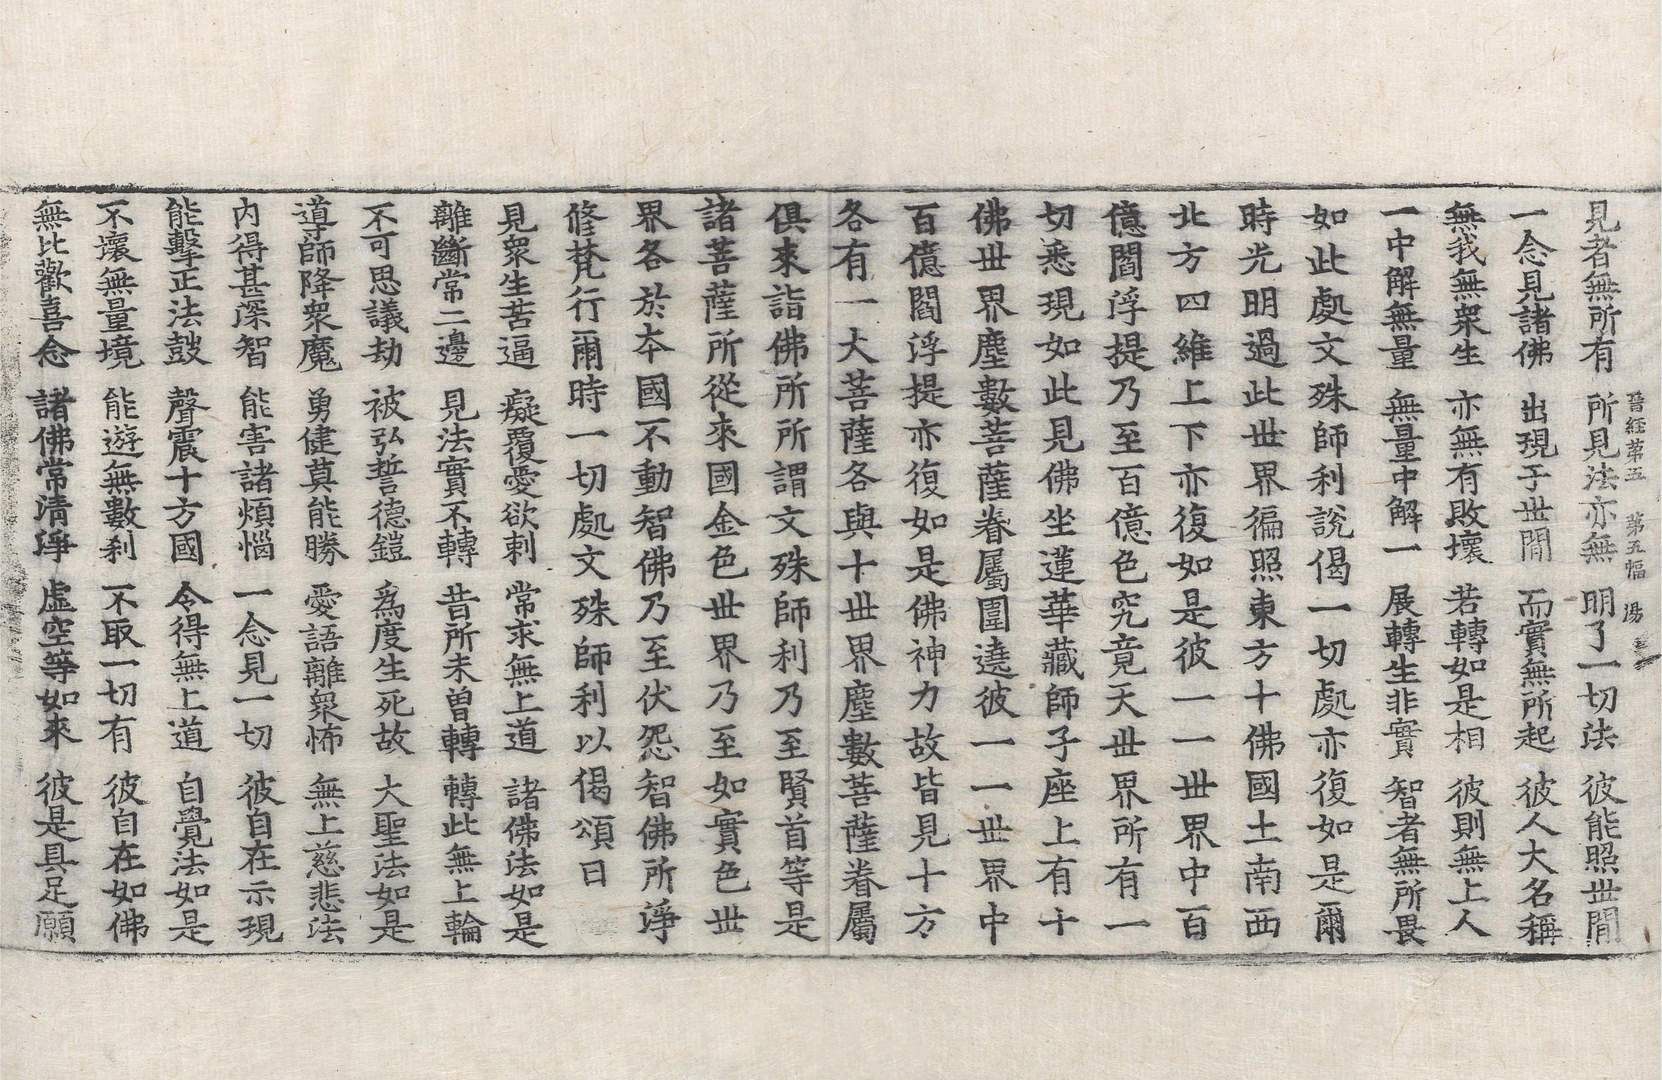 見者無所有 所見法亦無 明了一切法 彼能照世間
晉経苐五 苐五幅 湯
一念見諸佛 出現于世間 而實無所起 彼人大名稱
無我無衆生 亦無有敗壞 若轉如是相 彼則無上人
一中解無量 無量中解一 展轉生非實 智者無所畏
如此處文殊師利說偈一切處亦復如是爾
時光明過此世界徧照東方十佛國土南西
北方四維上下亦復如是彼一一世界中百
億閻浮提乃至百億色究竟天世界所有一
切悉現如此見佛坐蓮華藏師子座上有十
佛世界塵數菩薩眷屬圍遶彼一一世界中
百億閻浮提亦復如是佛神力故皆見十方
各有一大菩薩各與十世界塵數菩薩眷屬
俱來詣佛所所謂文殊師利乃至賢首等是
諸菩薩所從來國金色世界乃至如實色世
界各於本國不動智佛乃至伏怨智佛所淨
修梵行爾時一切處文殊師利以偈頌曰
見衆生苦逼 癡覆愛欲刺 常求無上道 諸佛法如是
離斷常二邊 見法實不轉 昔所未曾轉 轉此無上輪
不可思議劫 被弘誓德鎧 爲度生死故 大聖法如是
導師降衆魔 勇健莫能勝 愛語離衆怖 無上慈悲法
內得甚深智 能害諸煩惱 一念見一切 彼自在示現
能擊正法鼓 聲震十方國 令得無上道 自覺法如是
不壞無量境 能遊無數刹 不取一切有 彼自在如佛
無比歡喜念 諸佛常清淨 虛空等如來 彼是具足願